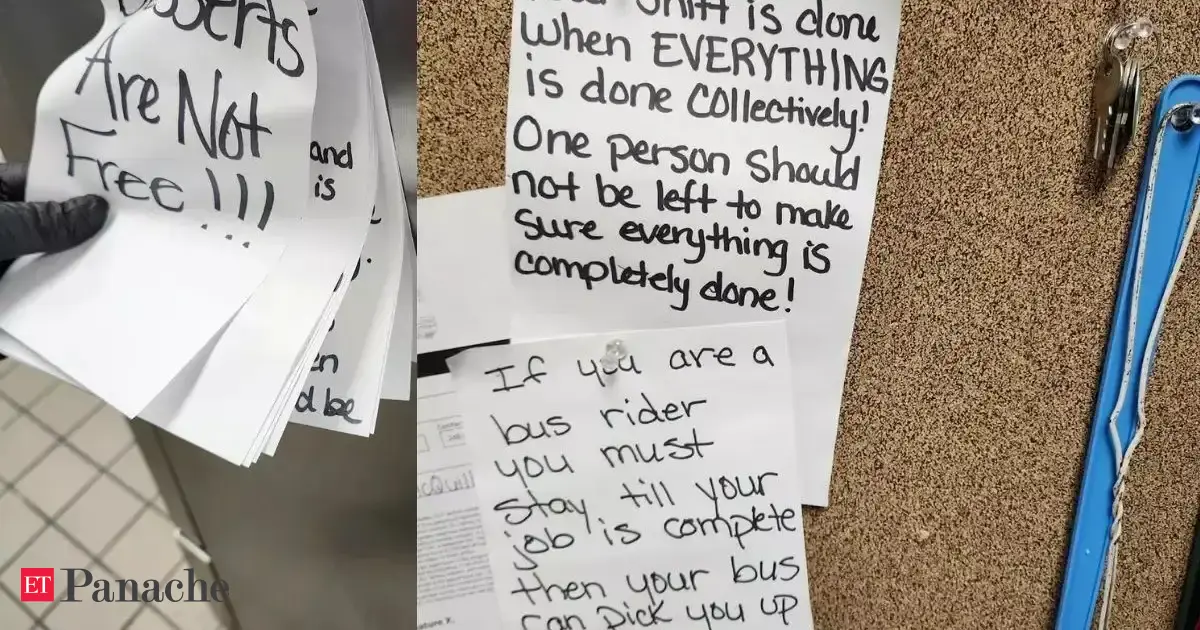 Are Not
Free!!!
and
is
en
d be
shift is done
when EVERYTHING
is done collectively!
One person should
not be left to make
sure everything is
completely done!
If you are a
bus rider
you must
stay till your
job is complete
then your bus
can pick you up
ET Panache